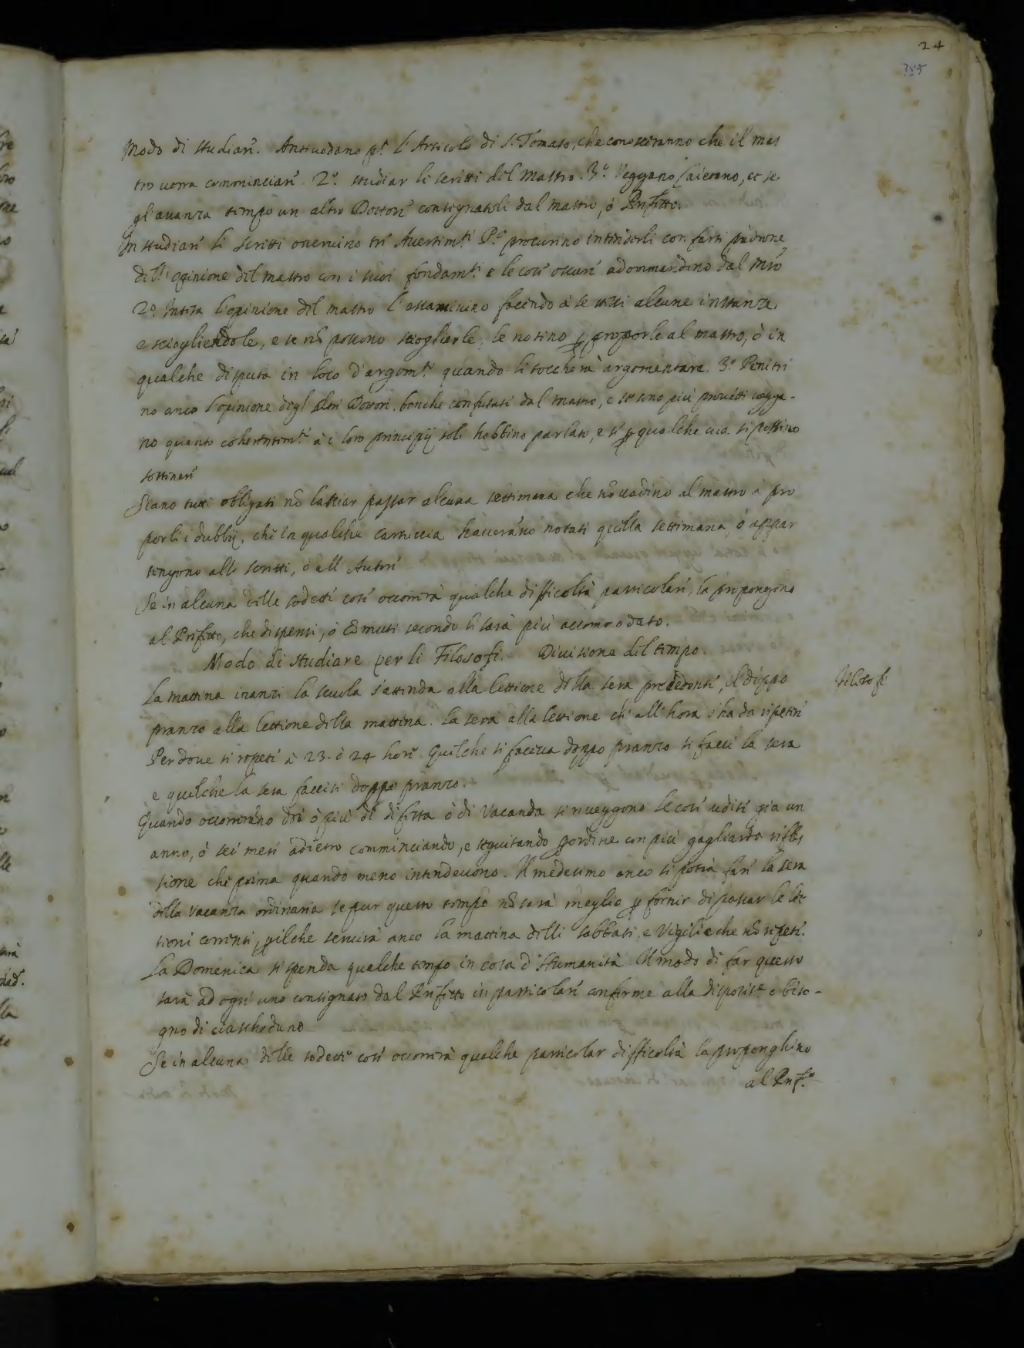 24
355
Modo di studiar. Antivedano p.º l'Articolo di S. Tomaso, che conosceranno che il mas
tro vorrà comminciar. 2.º studiar li scritti del mastro. 3.º Veggano Caietano, et se
gl'avanza tempo un altro Dottor consignatoli dal mastro, ò Prefetto.
In studiar li scritti osservino tre Avertim.ti P.º procurino intenderli con farsi padrone
dell'opinione del mastro con i suoi fondam.ti e le cose oscure adommandino dal mrõ
2.º Intesa l'opinione del mastro l'essaminino facendo à se stessi alcune instanze
e sciogliendole, e se nõ possono scioglierle, se notino p proporle al mastro, ò in
qualche disputa in loco d'argom.ti quando li toccherà argomentare. 3.º Penetri
no anco l'opinione degl'altri Dottori, benche confutati dal mastro, e se sono più provetti vegga-
no quanto coherentem.te à i loro principij soli habbino parlato, e se p qualche via si possino
sostiner
Siano tutti obligati nõ lasciar passar alcuna settimana che nõ vadino al mastro à pro
porli i dubbij, che in qualche cartuccia haveranno notati quella settimana, ò appar
tengono alli scritti, ò all'Autor
Se in alcuna delle sodette cose occorrerà qualche difficoltà particolar, la propongono
al Prefetto, che dispensi, ò cõmuti secondo li sarà più accommodato.
Modo di studiare per li Filosofi. Divisione del tempo.
La mattina inanzi la scuola s'attenda alla lettione della sera precedente, il doppo
Filosofi
pranzo alla lettione della mattina. La sera alla lettione ch'all'hora s'ha da ripeter
Perdove si ripete à 23. ò 24 hore. Quelche si faceva doppo pranzo si facci la sera
e quelche la sera faccisi doppo pranzo.
Quando occorreranno doi ò più dì di festa ò di Vacanza si riveggono le cose udite già un
anno, ò sei mesi adietro comminciando, e seguitando p ordine con più gagliarda rifles
sione che prima quando meno intendevono. Il medesimo anco si potrà far la sera
della vacanza ordinaria se pur questo tempo nõ sarà meglio p fornir di passar le let
tioni correnti, p ilche servirà anco la mattina delli sabbati, e Vigilie che nõ ripete.
La Domenica si spenda qualche tempo in cosa d'Humanità. Il modo di far questo
sarà ad ogni uno consignato dal Prefetto in particolar conforme alla disposit.ne e biso-
gno di ciascheduno
Se in alcuna delle sodette cose occorrerà qualche particolar difficoltà la proponghino
al Pref.º